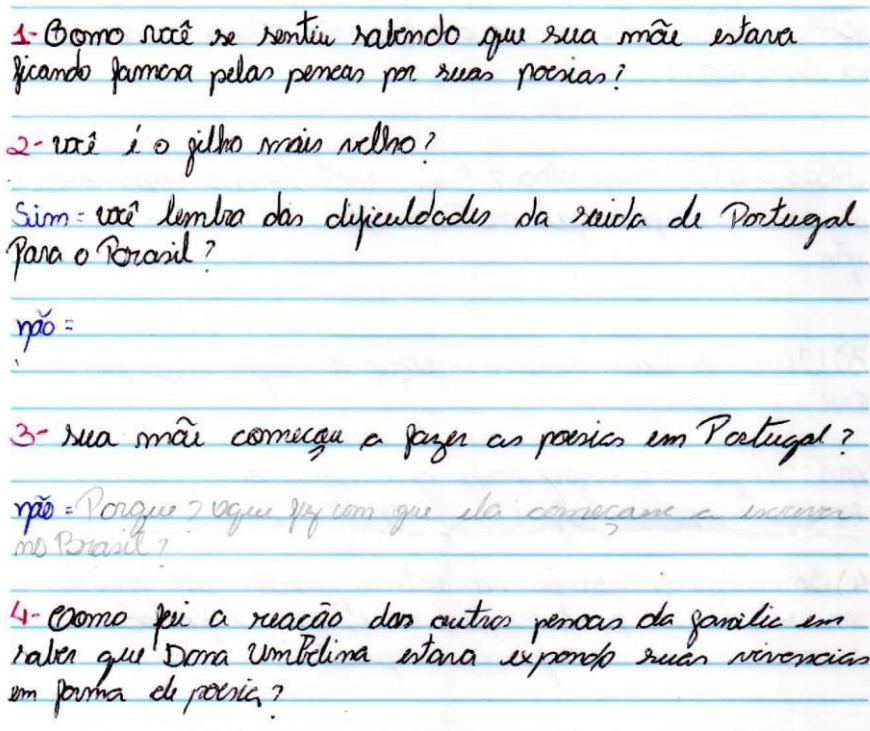 1- Como você se sentiu sabendo que sua mãe estava
ficando famosa pelas pessoas por suas poesias?
2- você é o filho mais velho?
Sim = você lembra das dificuldades da saida de Portugal
Para o Brasil?
não =
3- sua mãe começou a fazer as poesias em Portugal?
não = Porque? oque fez com que ela começasse a escrever
no Brasil?
4- Como foi a reação das outras pessoas da familia em
saber que Dona Umbelina estava expondo suas vivencias
em forma de poesia?